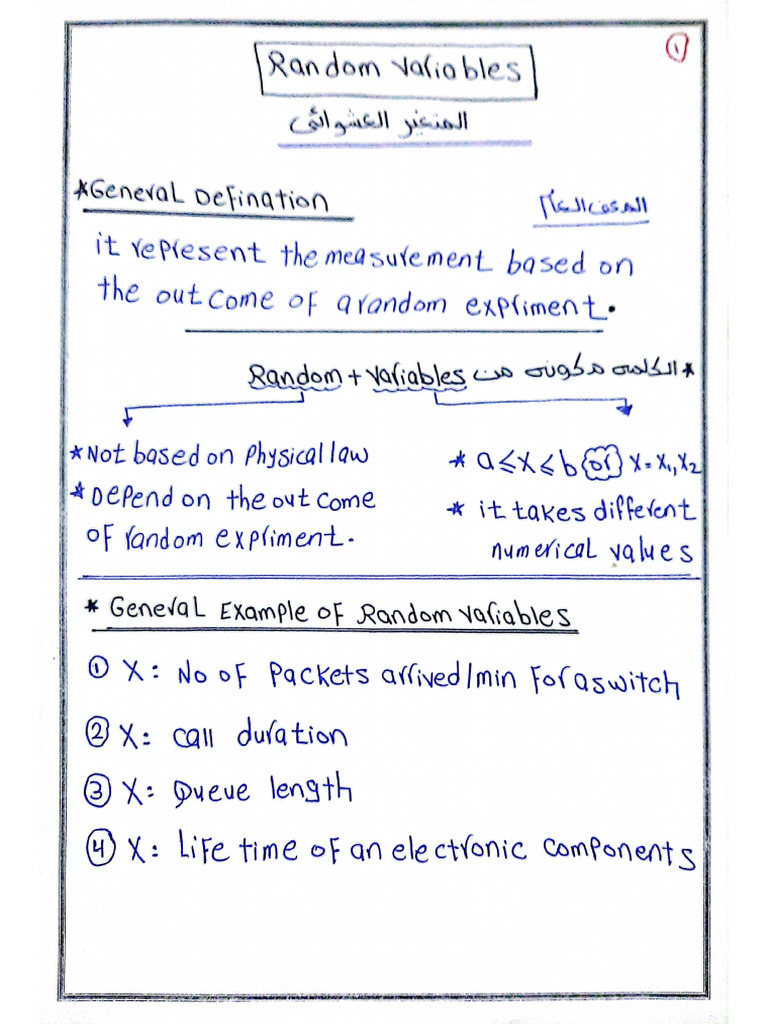 ١
Random Variables
المتغير العشوائى
*General Defination
المعرف العام
it represent the measurement based on
the outcome of a random expriment.
الكلمه مكونه من Random + Variables *
*Not based on Physical law
*Depend on the outcome
of random expriment.
* a≤x≤b or x=x₁,x₂
* it takes different
numerical values
* General Example of Random Variables
① X: No of Packets arrived/min For a switch
② X: Call duration
③ X: Queue length
④ X: Life time of an electronic components